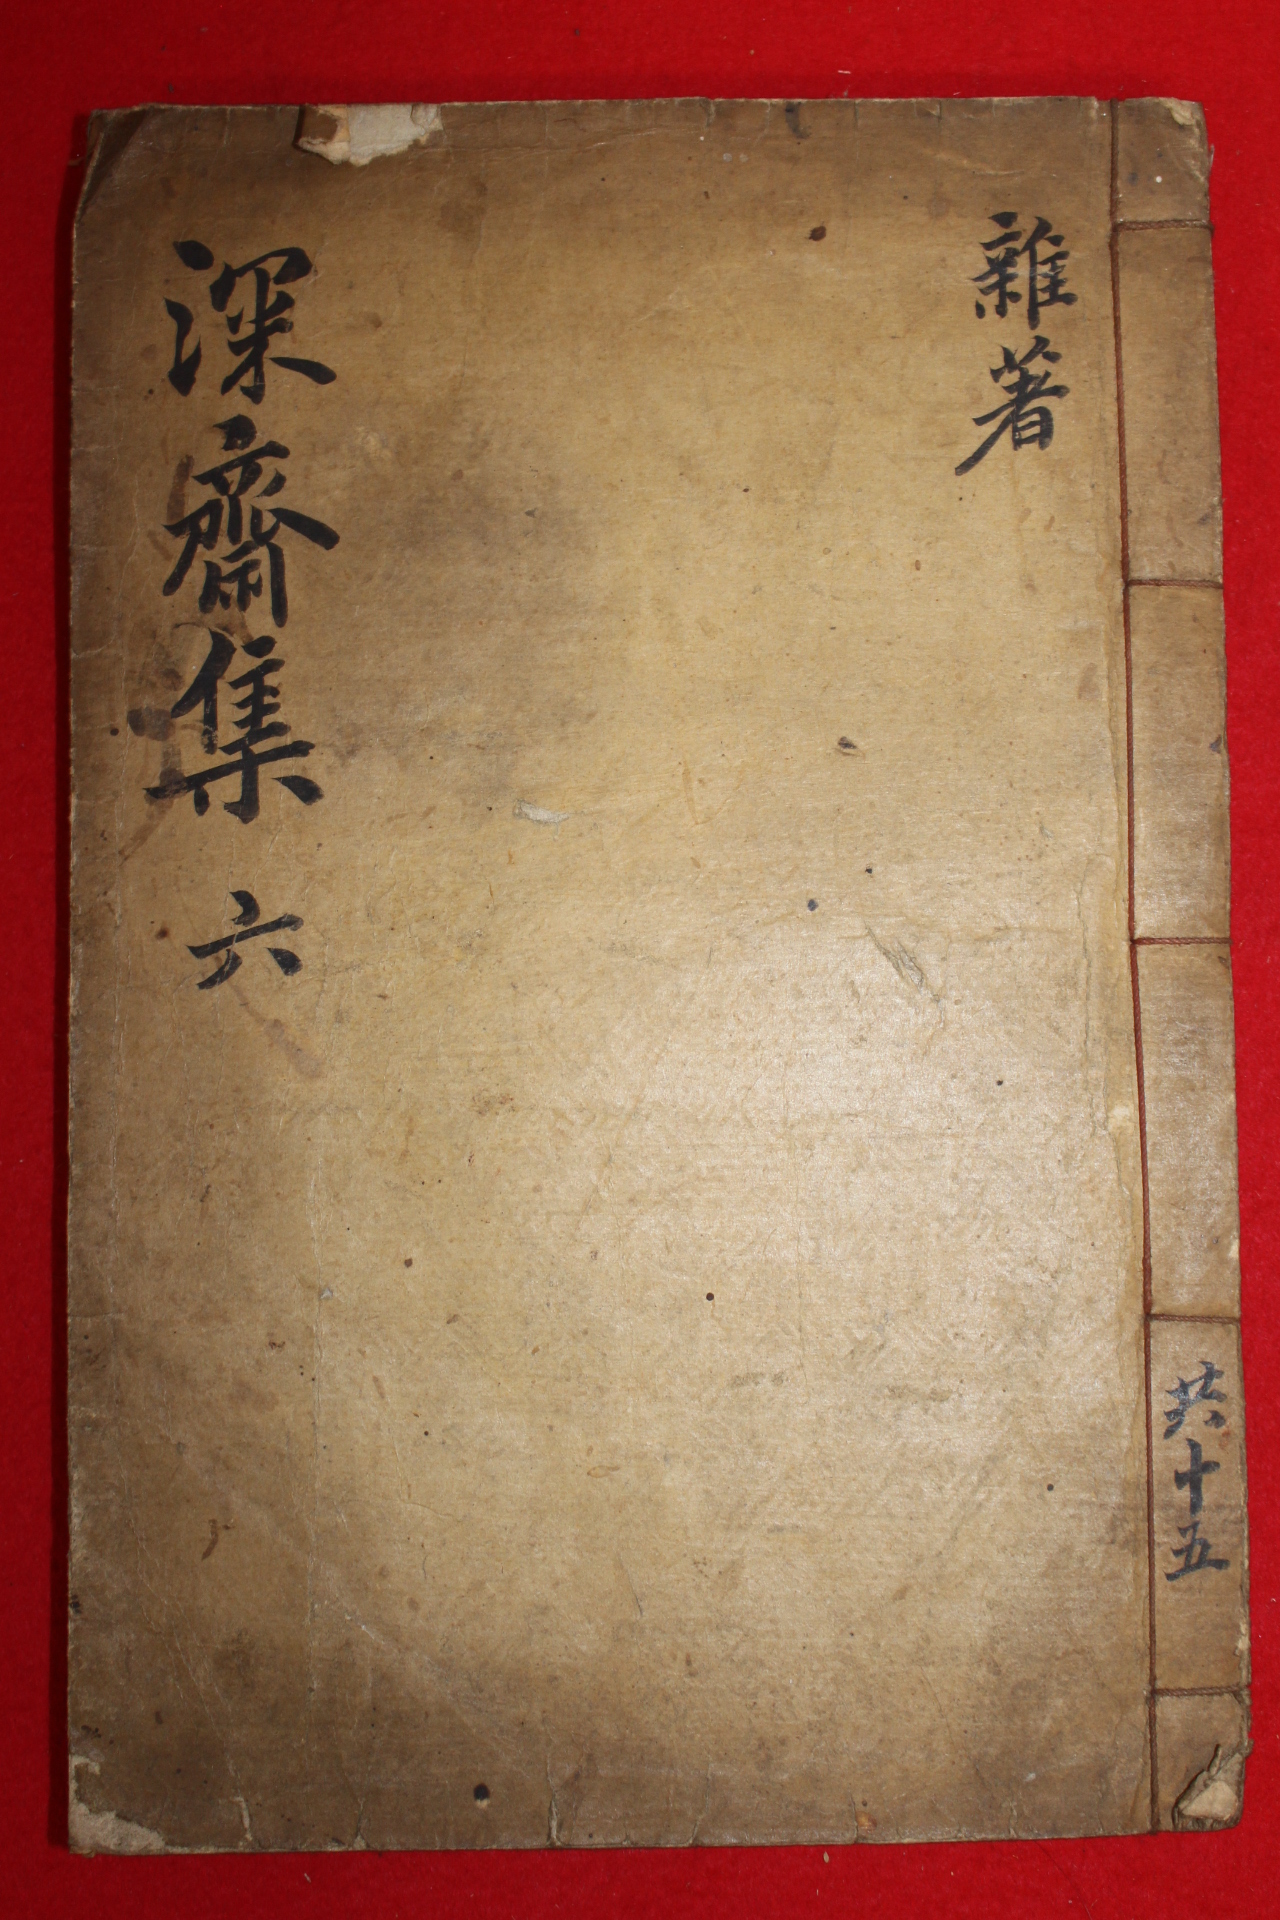 共十五
雜著
深齋集 六